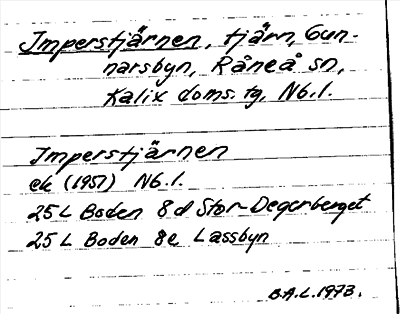 Imperstjärnen, tjärn, Gun-
narsbyn, Råneå sn,
Kalix doms. tg, Nb. l.
Imperstjärnen
ek (1951) Nb. l.
25 L Boden 8 d Stor-Degerberget
25 L Boden 8e Lassbyn
B.A.L. 1973.